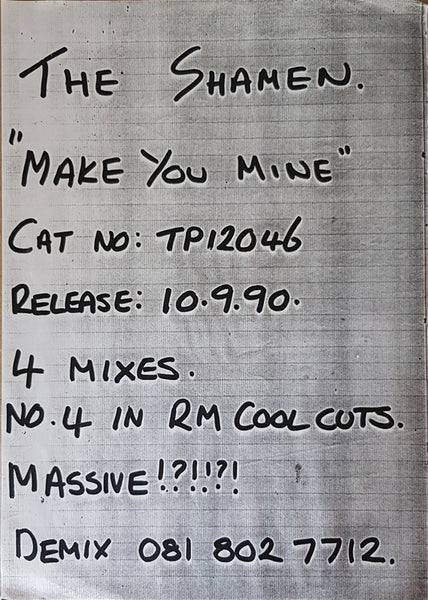 THE SHAMEN.
"MAKE YOU MINE"
CAT NO: TP12046
RELEASE: 10.9.90.
4 MIXES.
NO.4 IN RM COOL CUTS.
MASSIVE!?!!?!
DEMIX 081 802 7712.